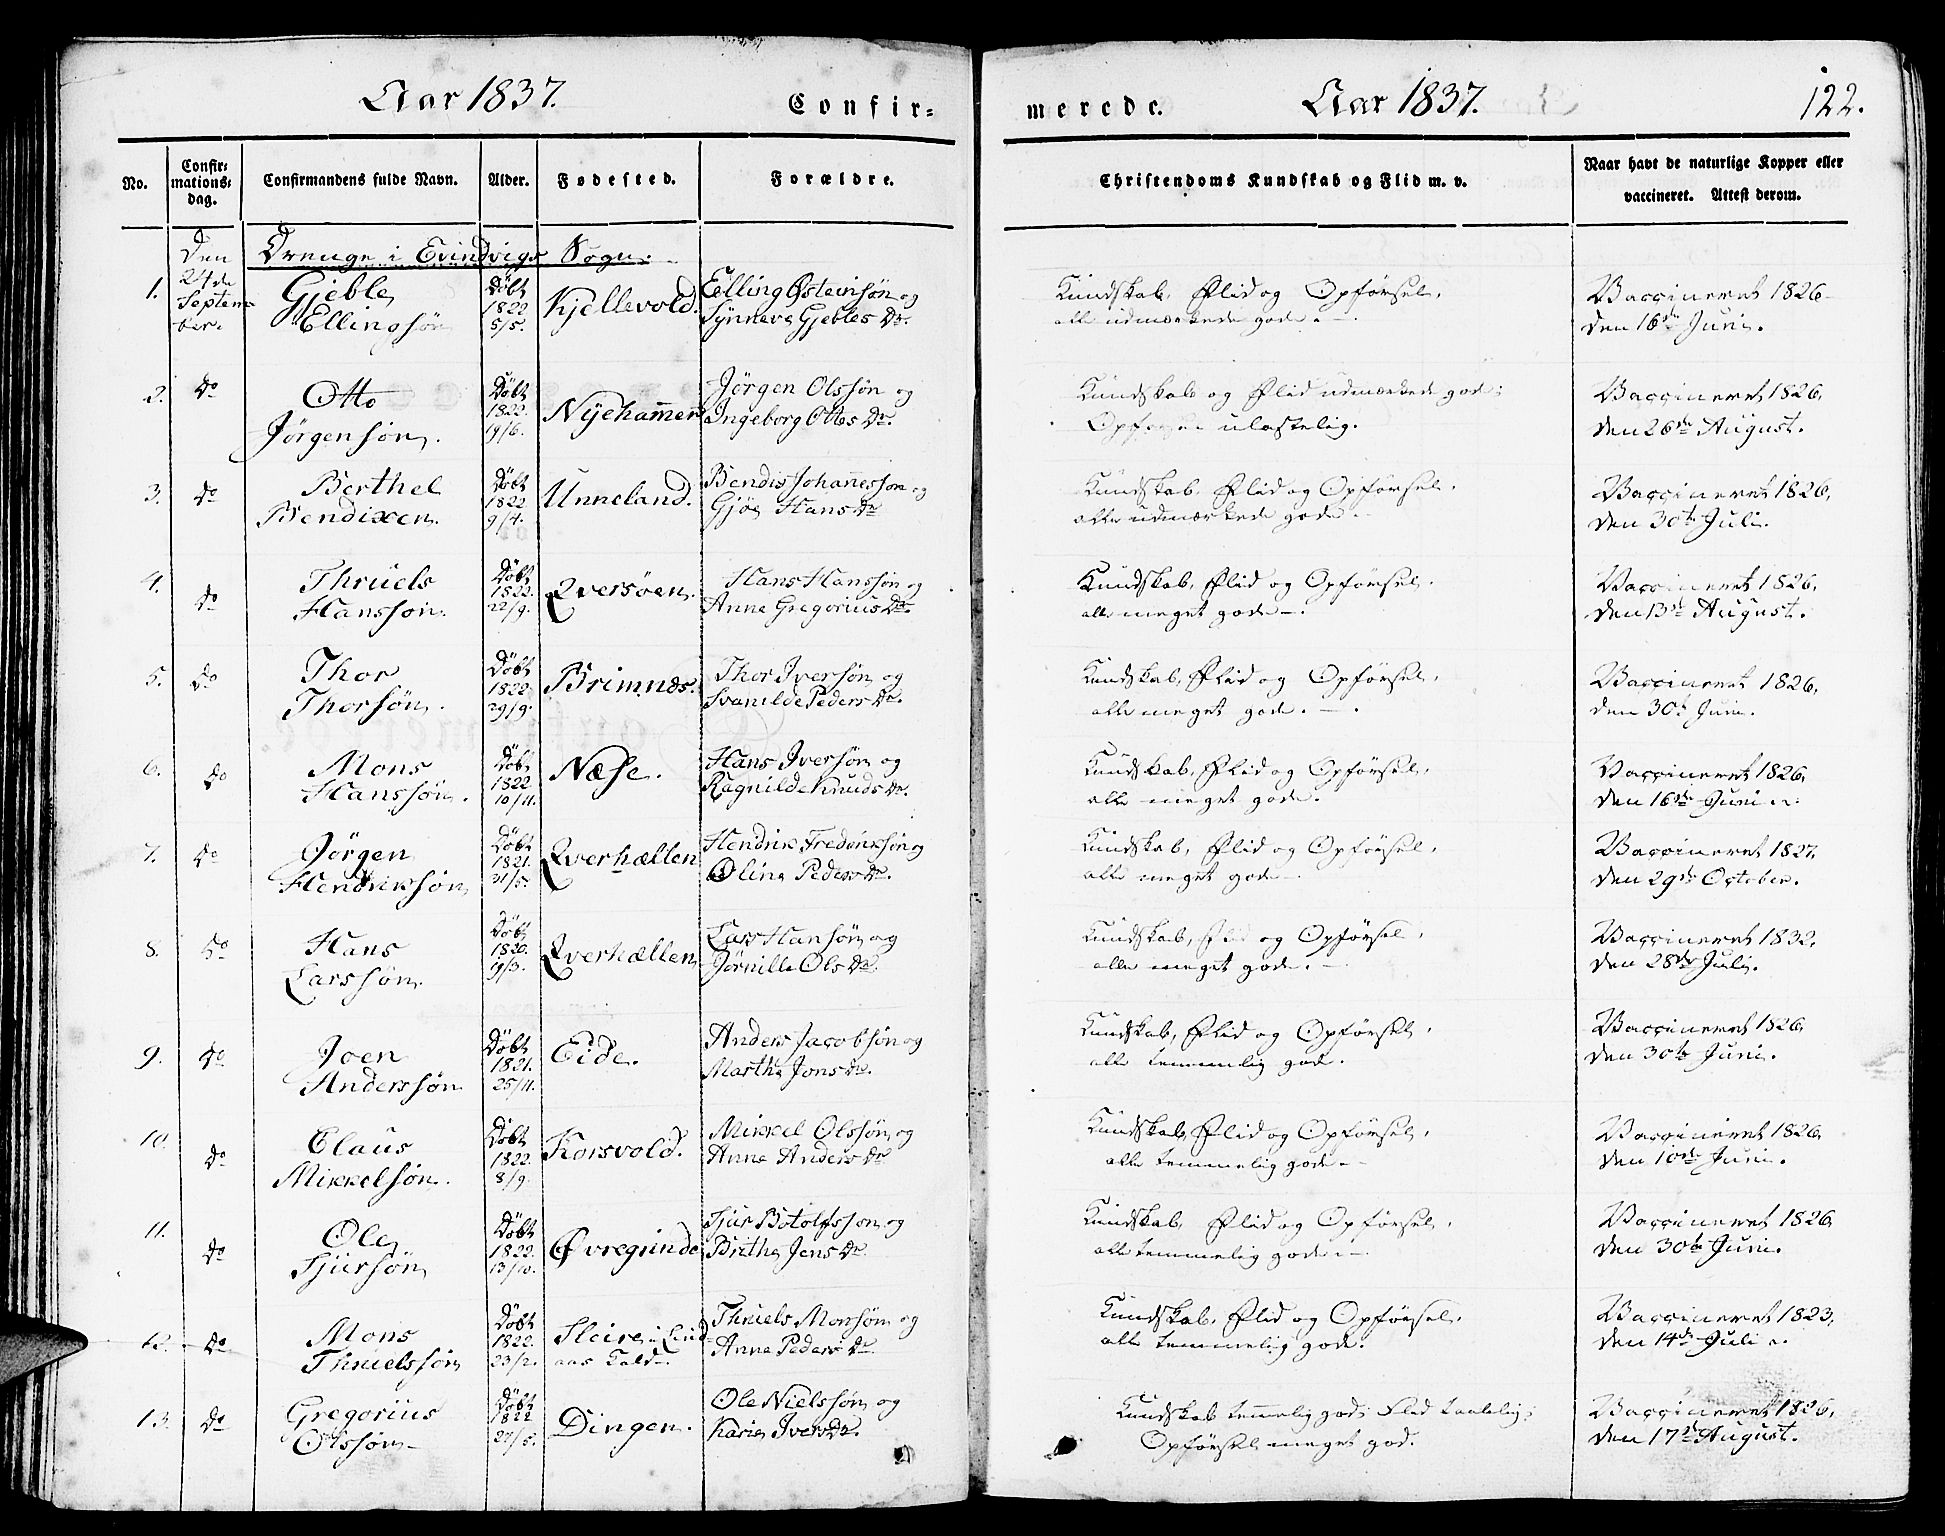 Aar 1837.
Confir=
merede.
Aar 1837.
122.
No.
Confir=
mations=
dag.
Confirmandens fulde Navn.
Alder.
Fødested.
Forældre.
Christendoms Kundskab og Flid m. v.
Naar havt de naturlige Kopper eller
vaccineret. Attest derom.
Den
24de
Septem-
ber.
Drenge i Evindvigs Sogn.
1. Gjeble
Ellingsøn
Døbt
1822
5/5.
Kjellevold.
Elling Østeinsøn og
Synneva Gjebles Dr.
Kundskab, Flid og Opførsel,
alle udmærkede gode.
Vaccineret 1826
den 16de Juni.
2. Do
Otto
Jørgensøn.
Døbt
1822.
19/6.
Nyehammer
Jørgen Olssøn og
Ingeborg Ottes Dr.
Kundskab og Flid udmærkede gode;
Opførsel ulastelig.
Vaccineret 1826,
den 26de August.
3. Do
Berthel
Bendixen.
Døbt
1822
9/4.
Unneland.
Bendis Johannessøn og
Gjøe Hans Dr
Kundskab, Flid og Opførsel,
alle udmærkede gode.
Vaccineret 1826,
den 30te Juli.
4. Do
Thruels
Hanssøn.
Døbt
1822.
22/9.
Qversøen.
Hans Hanssøn og
Anne Gregorius Dr.
Kundskab, Flid og Opførsel,
alle meget gode.
Vaccineret 1826,
den 13de August.
5. Do
Thor
Thorsøn.
Døbt
1822
29/9.
Brimnes.
Thor Iversøn og
Svanilde Peders Dr.
Kundskab, Flid og Opførsel,
alle meget gode.
Vaccineret 1826,
den 30te Juni.
6. Do
Mons
Hanssøn.
Døbt
1822
10/11.
Næse.
Hans Iversøn og
Ragnilde Knuds Dr.
Kundskab, Flid og Opførsel,
alle meget gode.
Vaccineret 1826,
den 16de Juni.
7. Do
Jørgen
Hendriksøn
Døbt
1821.
31/5.
Qverhællen
Hendrik Fredriksøn og
Oline Peders Dr.
Kundskab, Flid og Opførsel,
alle meget gode.
Vaccineret 1827,
den 29de October.
8. Do
Hans
Larssøn.
Døbt
1820.
19/3.
Qverhællen
Lars Hansøn og
Jørnille Ols Dr.
Kundskab, Flid og Opførsel,
alle meget gode.
Vaccineret 1832,
den 28de Juli.
9. Do
Joen
Anderssøn
Døbt
1821.
25/11.
Eide.
Anders Jacobsøn og
Marthe Jons Dr.
Kundskab, Flid og Opførsel,
alle temmelig gode.
Vaccineret 1826,
den 30te Juni.
10. Do
Claus
Mikkelsøn.
Døbt
1822.
8/9.
Korsvold.
Mikkel Olssøn og
Anne Anders Dr
Kundskab, Flid og Opførsel,
alle temmelig gode.
Vaccineret 1826,
den 10de Juni.
11. Do
Ole
Sjursøn
Døbt
1822.
13/10.
Øvregrinde
Sjur Botolfssøn og
Brithe Jens Dr.
Kundskab, Flid og Opførsel,
alle temmelig gode.
Vaccineret 1826,
den 30te Juni.
12. Do
Mons
Thruelssøn
Døbt
1822.
23/2.
i Lind-
aas Kald.
Thruels Monsøn og
Anne Peders Dr.
Kundskab, Flid og Opførsel,
alle temmelig gode.
Vaccineret 1823,
den 14de Juli.
13. Do
Gregorius
Olssøn
Døbt
1822
27/5.
Dingen.
Ole Nielssøn og
Kari Ivers Dr.
Kundskab temmelig god; Flid taalelig;
Opførsel meget god.
Vaccineret 1826,
den 17de August.